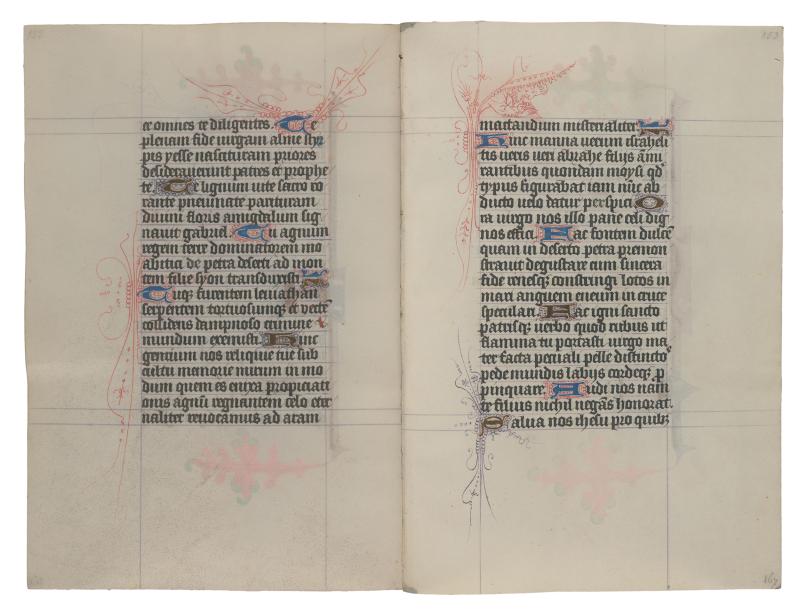 et omnes te diligentes. Te
plenam fide virgam alme styr
pis yesse nascituram priores
desideraverunt patres et prophe
te. Te lignum vite sacro ro
rante pneumate parituram
divini floris amigdalum sig
navit gabriel. Tu agnum
regem terre dominatorem mo
abitici de petra deserti ad mon
tem filie syon transduxisti
Tuqz furentem leviathan
serpentem tortuosumqz et vecte
collidens dampnoso crimine
mundum exemisti. Hinc
gentium nos reliquie tue sub
cultu memorie mirum in mo
dum quem es enixa propiciati
onis agnū regnantem celo eter
naliter revocamus ad aram
153
mactandum misterialiter
Hinc manna verum israheli
tis veris veri abrahe filijs ami
rantibus quondam moysi qd
typus figurabat iam nūc ab
ducto velo datur perspici O
ra virgo nos illo pane celi dig
nos effici. Fac fontem dulcē
quam in deserto petra premon
stravit degustare cum sincera
fide renesqz constringi lotos in
mari anguem eneum in cruce
speculari. Fac igni sancto
patrisqz verbo quod rubus ut
flamma tu portasti virgo ma
ter facta pecuali pelle distincto
pede mundis labijs cordeqz p
pinquare. Audi nos nam
te filius nichil negās honorat.
Salva nos ihesu pro quibz
167